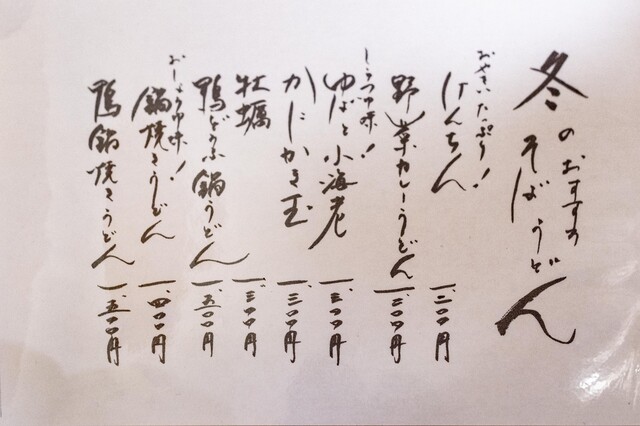 冬のおすすめ
そばうどん
おやさいたっぷり!
けんちん 一、二〇〇円
野菜カレーうどん 一、二〇〇円
しょうゆ味!
ゆばと小海老 一、三〇〇円
かにかき玉 一、三〇〇円
牡蠣 一、三〇〇円
鴨どうふ鍋うどん 一、五〇〇円
おしょうゆ味!
鍋焼きうどん 一、四〇〇円
鴨鍋焼きうどん 一、五〇〇円